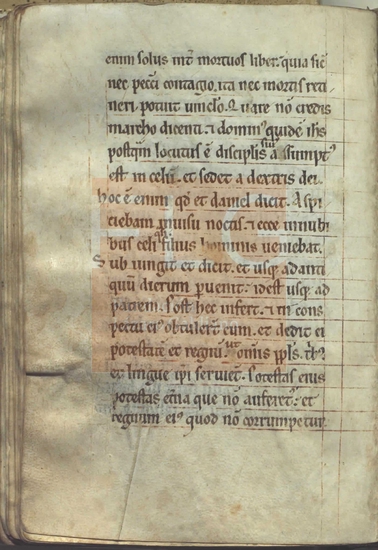 enim solus int̄ mortuos liber. quia sic̄
nec pecc̄i contagio. ita nec mortis reti
neri potuit uinc̄lo. Quare nō credis
marcho dicenti. ⁊ domin᷒ quidē ih̄s
postq̄m locutus ē disciplis suis assumpt᷒
est in celū. et sedet a dextris dei.
hoc ē enim qd̄ et daniel dicit. Aspi
ciebam in uisu noctis. ⁊ ecce in nubi
bus celi qͣsi filius hominis ueniebat.
Sub iungit et dicit. et usq; ad anti
quū dierum ꝑuenit. idest usq; ad
patrem. Post hec infert. ⁊ in cons
pectu ei᷒ obtuler̄t eum. et dedit ei
potestatē et regnū. ut om̄is pp̄ls. tͥb᷒
et lingue ip̄i seruiēt. Potestas eius
potestas et̄na que nō auferet᷑. et
regnum ei᷒ quod nō corrumpetur